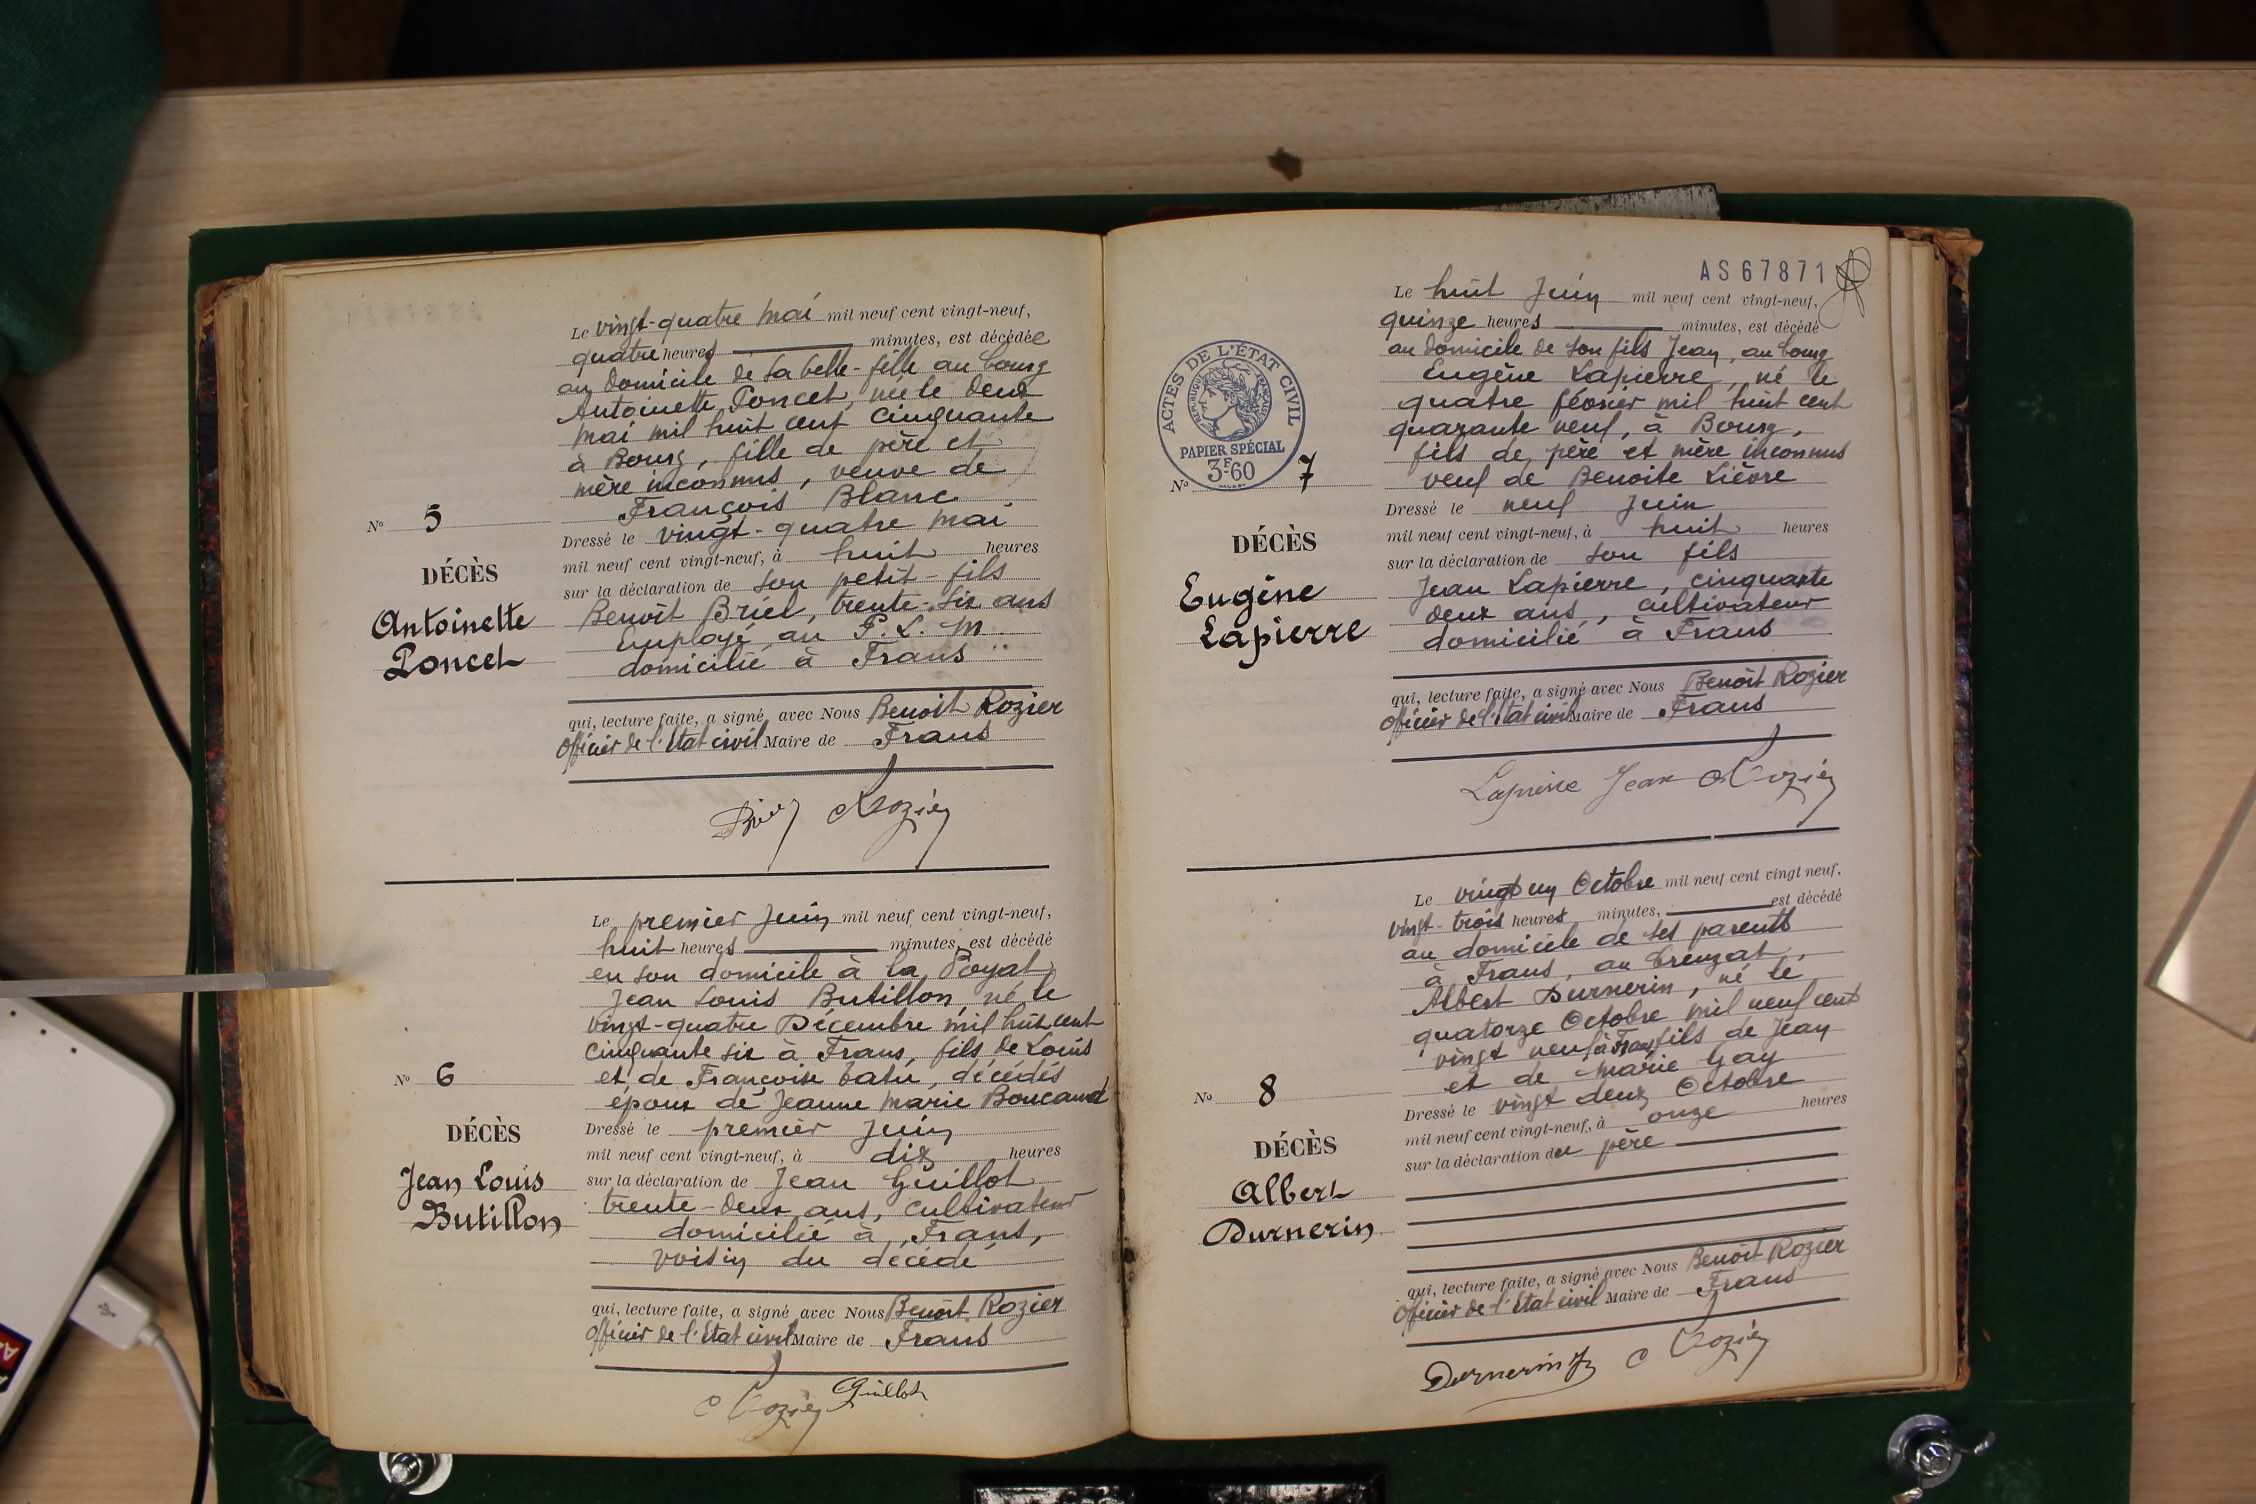 Le vingt-quatre mai mil neuf cent vingt-neuf,
quatre heures minutes, est décédée
au domicile de sa belle-fille au bourg
Antoinette Poncet, née le deux
mai mil huit cent cinquante
à Bourg, fille de père et
mère inconnus, veuve de
François Blanc
N° 5
Dressé le vingt-quatre mai
mil neuf cent vingt-neuf, à huit heures
DÉCÈS
sur la déclaration de son petit-fils
Antoinette
Poncet
Benoît Briel, trente-six ans
Employé au P.L.M
domicilié à Frans
qui, lecture faite, a signé avec Nous Benoit Rozier
Officier de l'Etat civil Maire de Frans
Rozier
Le premier Juin mil neuf cent vingt-neuf,
huit heures minutes, est décédé
en son domicile à la Poyat
Jean Louis Butillon, né le
vingt-quatre Décembre mil huit cent
cinquante six à Frans, fils de Louis
et de Françoise Batu, décédés
N° 6
époux de Jeanne Marie Boucaud
Dressé le premier Juin
DÉCÈS
mil neuf cent vingt-neuf, à dix heures
Jean Louis
Butillon
sur la déclaration de Jean Guillot
trente-deux ans, cultivateur
domicilié à Frans,
voisin du décédé
qui, lecture faite, a signé avec Nous Benoît Rozier
Officier de l'Etat civil Maire de Frans
Rozier Guillot
AS67871
Le huit Juin mil neuf cent vingt-neuf,
quinze heures minutes, est décédé
au domicile de son fils Jean, au bourg
Eugène Lapierre, né le
quatre février mil huit cent
quarante neuf, à Bourg,
fils de père et mère inconnus
veuf de Benoite Lièvre
ACTES DE L'ÉTAT CIVIL
RÉPUBLIQUE FRANÇAISE
PAPIER SPÉCIAL
3F60
N° 7
Dressé le neuf Juin
mil neuf cent vingt-neuf, à huit heures
DÉCÈS
sur la déclaration de son fils
Eugène
Lapierre
Jean Lapierre, cinquante
deux ans, cultivateur
domicilié à Frans
qui, lecture faite, a signé avec Nous Benoît Rozier
Officier de l'Etat civil Maire de Frans
Lapierre Jean Rozier
Le vingt un Octobre mil neuf cent vingt neuf,
vingt-trois heures minutes, est décédé
au domicile de ses parents
à Frans, au Creuzat,
Albert Durnerin, né le
quatorze Octobre mil neuf cent
vingt neuf à Frans fils de Jean
et de Marie Gay
N° 8
Dressé le vingt deux Octobre
mil neuf cent vingt-neuf, à onze heures
DÉCÈS
sur la déclaration du père
Albert
Durnerin
qui, lecture faite, a signé avec Nous Benoît Rozier
Officier de l'Etat civil Maire de Frans
Durnerin Rozier